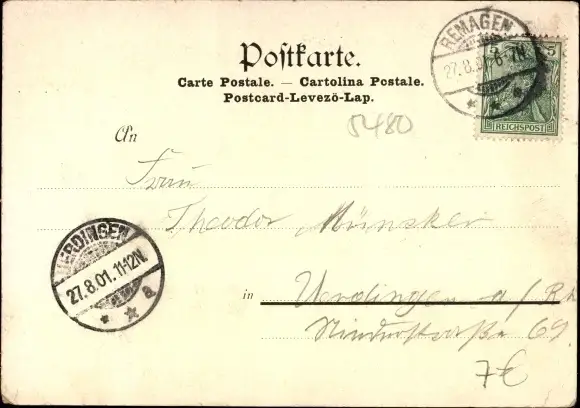 Postkarte.
Carte Postale. — Cartolina Postale.
Postcard-Levezö-Lap.
REMAGEN
27.8.01.6-7N.
5 5
REICHSPOST
5480
An
Frau
Theodor Münsker
UERDINGEN
27.8.01.11-12N.
a
in Uerdingen a/Rh
Niederstraße 69
7€